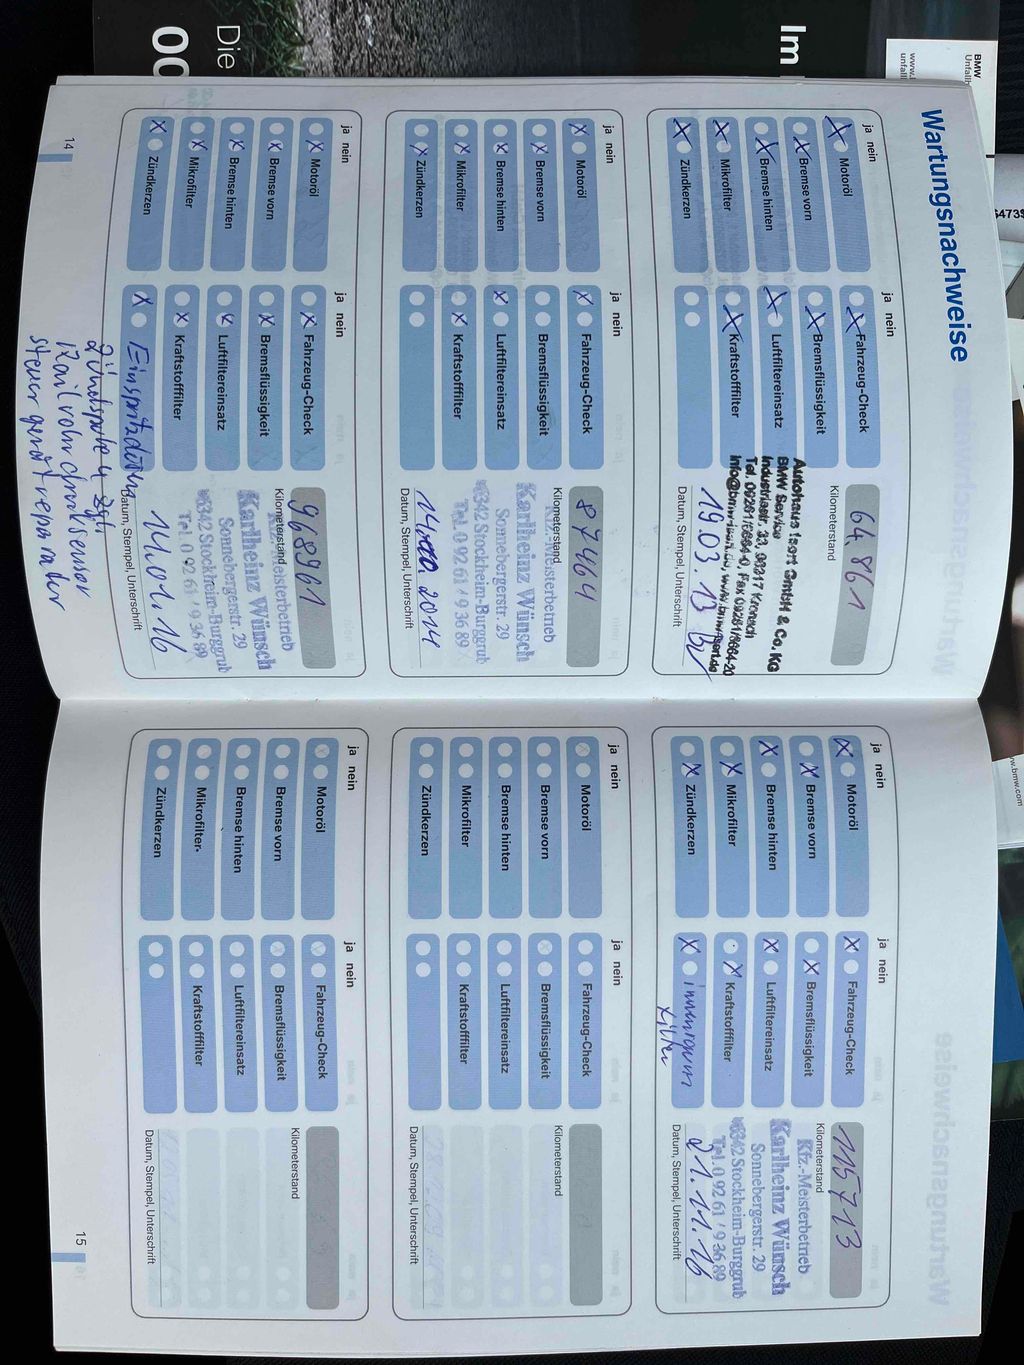 Wartungsnachweise
ja nein
Motoröl
Bremse vorn
Bremse hinten
Mikrofilter
Zündkerzen
ja nein
Fahrzeug-Check
Bremsflüssigkeit
Luftfiltereinsatz
Kraftstofffilter
64.861
Kilometerstand
BMW Service
Tel. 09261/6664-0, Fax 09261/6664-20
19.03.13
Datum, Stempel, Unterschrift
ja nein
Motoröl
Bremse vorn
Bremse hinten
Mikrofilter
Zündkerzen
ja nein
Fahrzeug-Check
Bremsflüssigkeit
Luftfiltereinsatz
Kraftstofffilter
87464
Kilometerstand
Kfz.-Meisterbetrieb
Karlheinz Wünsch
Sonnebergerstr. 29
96342 Stockheim-Burggrub
Tel. 0 92 61 / 9 36 89
2014
Datum, Stempel, Unterschrift
ja nein
Motoröl
Bremse vorn
Bremse hinten
Mikrofilter
Zündkerzen
ja nein
Fahrzeug-Check
Bremsflüssigkeit
Luftfiltereinsatz
Kraftstofffilter
968961
Kilometerstand
Kfz.-Meisterbetrieb
Karlheinz Wünsch
Sonnebergerstr. 29
96342 Stockheim-Burggrub
Tel. 0 92 61 / 9 36 89
14.01.16
Datum, Stempel, Unterschrift
Zündspule 4 Zyl.
Railrohrdrucksensor
14
ja nein
Motoröl
Bremse vorn
Bremse hinten
Mikrofilter
Zündkerzen
ja nein
Fahrzeug-Check
Bremsflüssigkeit
Luftfiltereinsatz
Kraftstofffilter
innenraum
filter
115713
Kilometerstand
Kfz.-Meisterbetrieb
Karlheinz Wünsch
Sonnebergerstr. 29
96342 Stockheim-Burggrub
Tel. 0 92 61 / 9 36 89
21.11.16
Datum, Stempel, Unterschrift
ja nein
Motoröl
Bremse vorn
Bremse hinten
Mikrofilter
Zündkerzen
ja nein
Fahrzeug-Check
Bremsflüssigkeit
Luftfiltereinsatz
Kraftstofffilter
Kilometerstand
Datum, Stempel, Unterschrift
ja nein
Motoröl
Bremse vorn
Bremse hinten
Mikrofilter
Zündkerzen
ja nein
Fahrzeug-Check
Bremsflüssigkeit
Luftfiltereinsatz
Kraftstofffilter
Kilometerstand
Datum, Stempel, Unterschrift
15
Im
Die
BMW